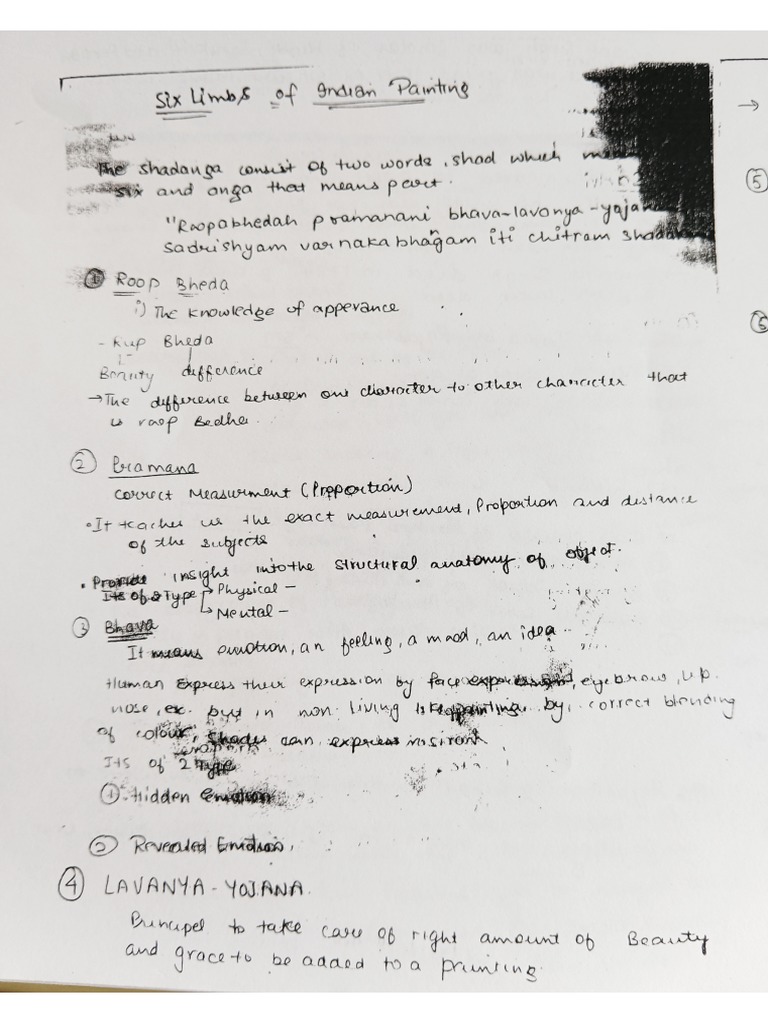 Six Limbs of Indian Painting
The Shadanga consist of two words, shad which
six and anga that means part.
"Roopabhedah pramanani bhava-lavanya-yojan
Sadrishyam varnakabhangam iti chitram Shada
① Roop Bheda
i) The knowledge of apperance
- Rup Bheda
Beauty difference
→ The difference between one character to other character that
is roop Bedha.
② Pramana
correct Measurment (Proportion)
• It teaches us the exact measurement, Proportion and distance
of the subjects
• Provide insight into the structural anatomy of object.
Its of 2 Type Physical -
Mental -
③ Bhava
It means emotion, an feeling, a mood, an idea
Human Express their expression by face, eyebrow, lip
nose, ex. but in non living by correct blending
of colour, shades can express
Its of 2 type
① Hidden Emotion
② Revealed Emotion.
④ LAVANYA - YOJANA.
Principel to take care of right amount of Beauty
and grace to be added to a painting.
→
⑤
⑥